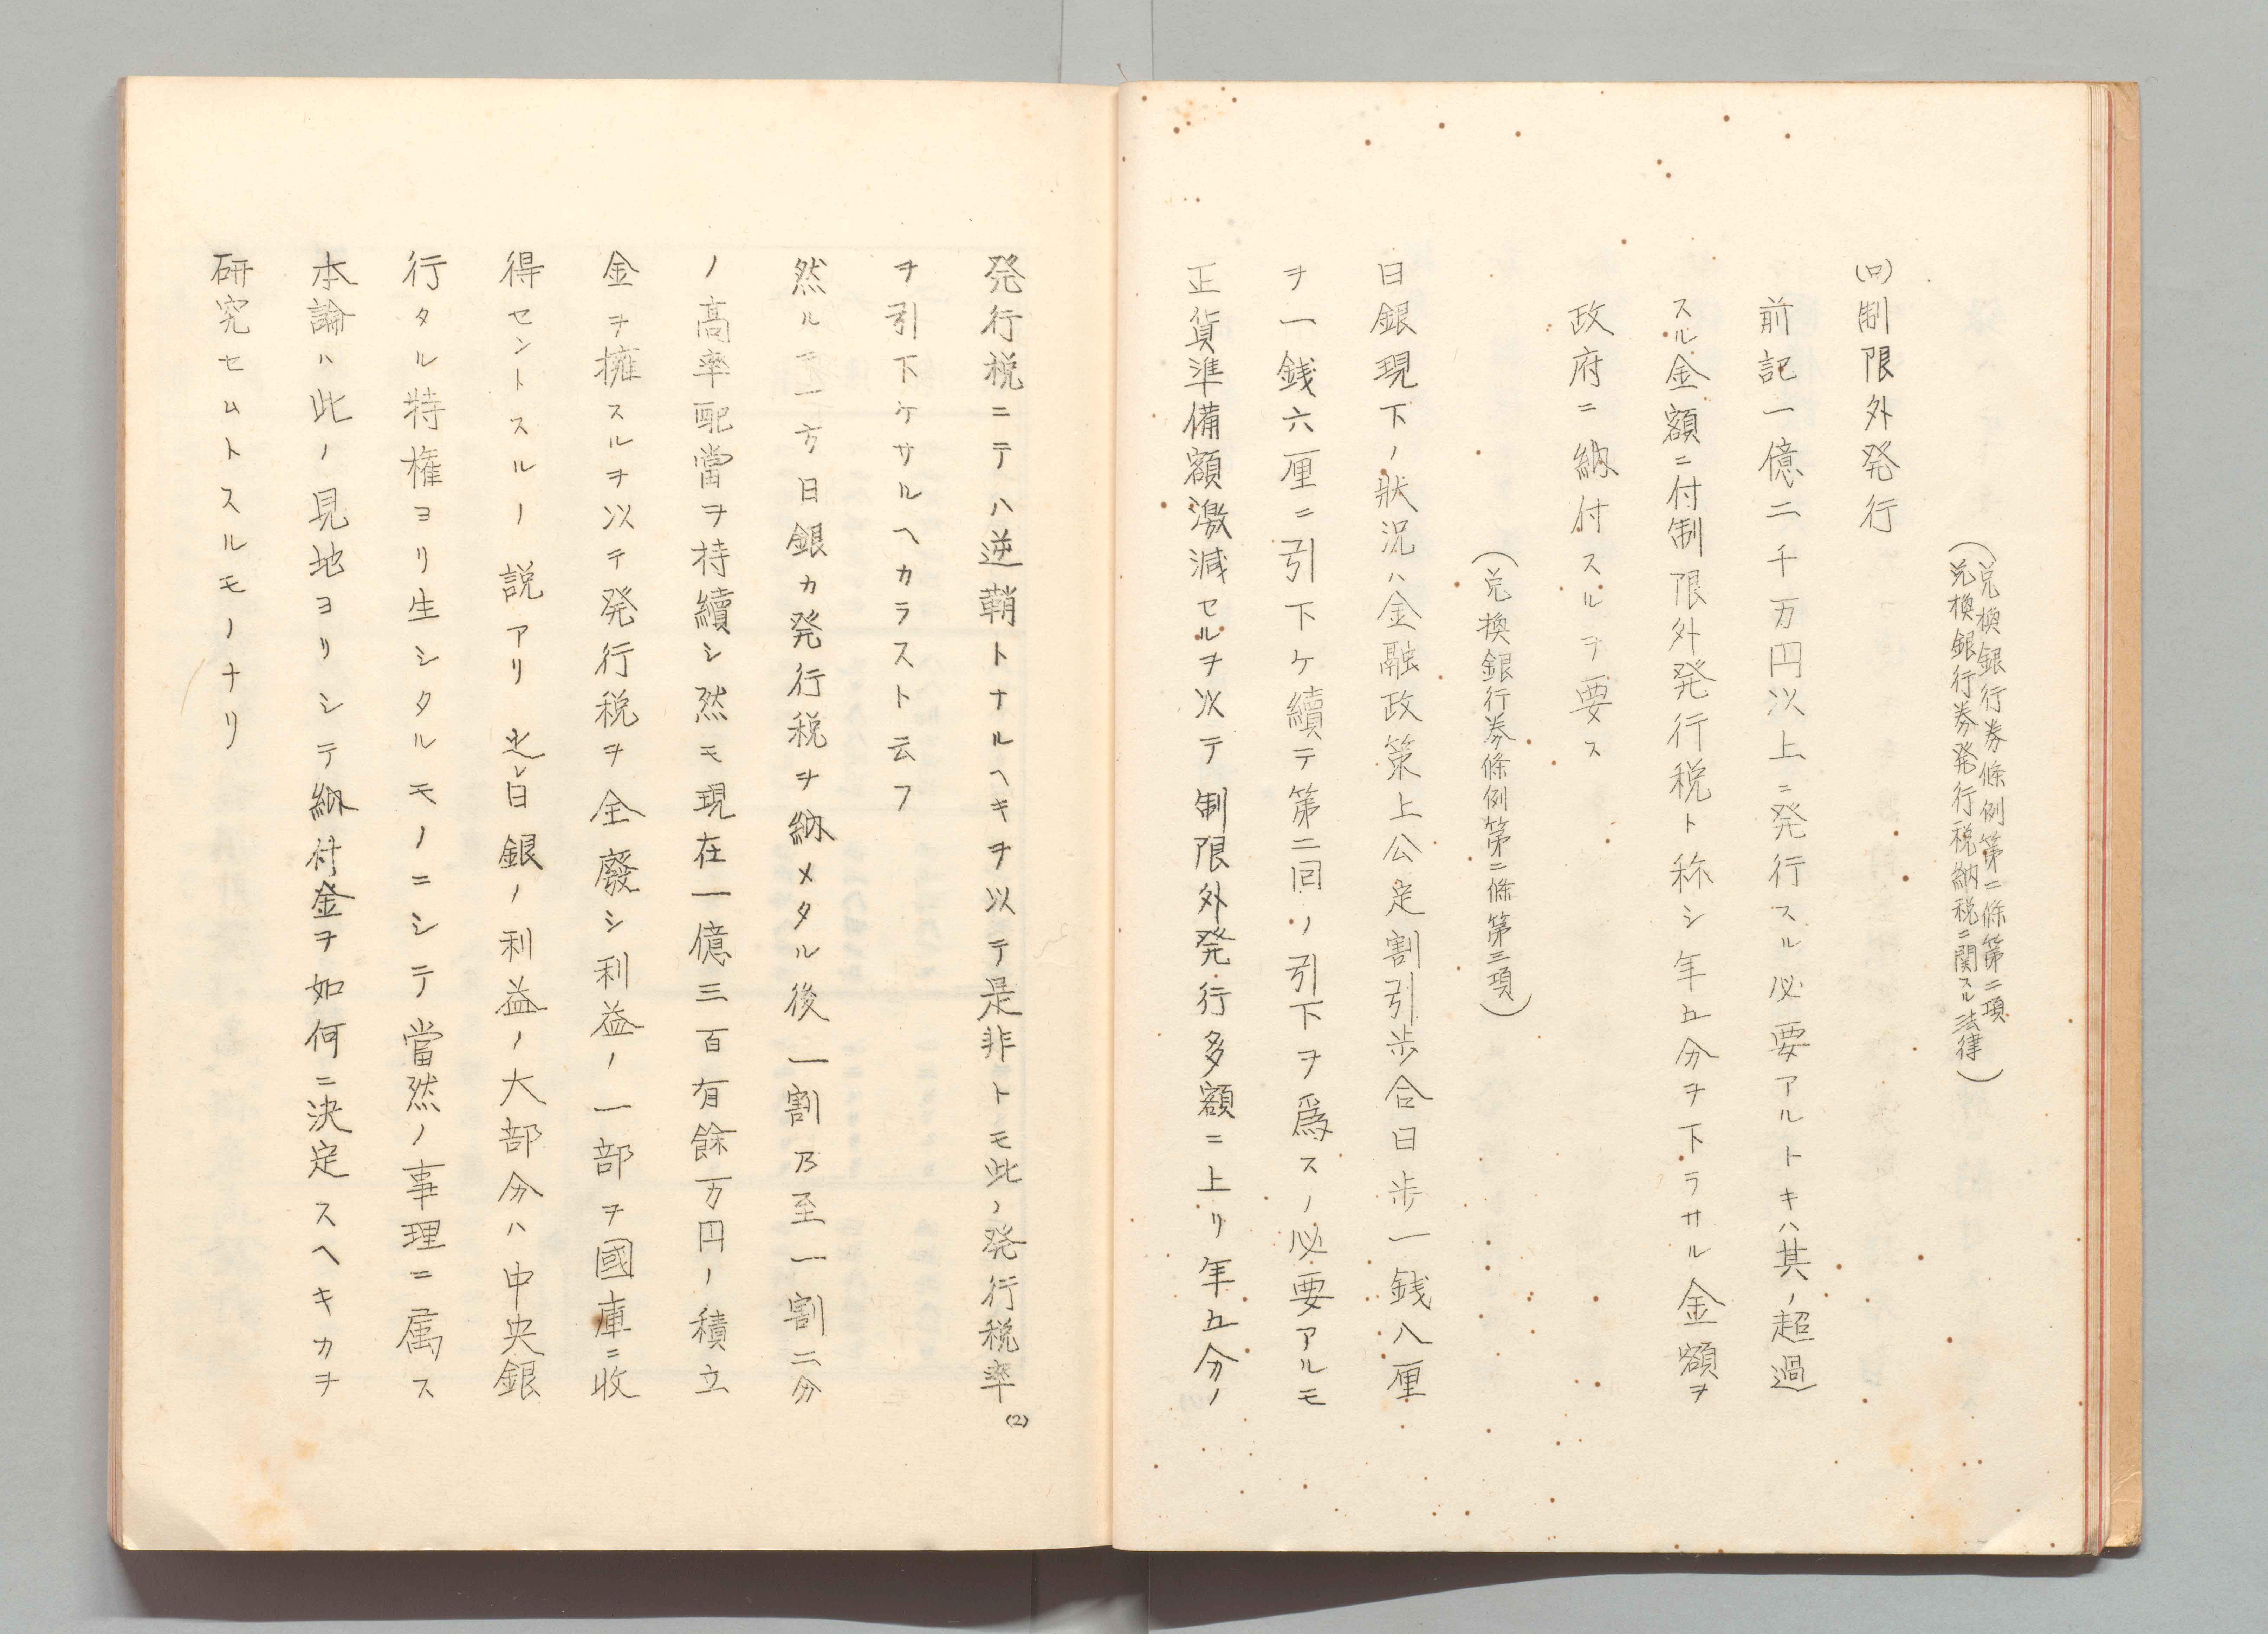 (兌換銀行券條例第二條第二項
兌換銀行券発行税納税ニ関スル法律)
(ロ)制限外発行
前記一億二千万円以上ニ発行スル必要アルトキハ其ノ超過
スル金額ニ付制限外発行税ト称シ年五分ヲ下ラサル金額ヲ
政府ニ納付スルヲ要ス
(兌換銀行券條例第二條第三項)
日銀現下ノ状況ハ金融政策上公定割引歩合日歩一銭八厘
ヲ一銭六厘ニ引下ケ續テ第二回ノ引下ヲ爲スノ必要アルモ
正貨準備額激減セルヲ以テ制限外発行多額ニ上リ年五分ノ
発行税ニテハ逆鞘トナルヘキヲ以テ是非トモ此ノ発行税率
ヲ引下ケサルヘカラスト云フ
然ルニ一方日銀カ発行税ヲ納メタル後一割乃至一割二分
ノ高率配當ヲ持續シ然モ現在一億三百有餘万円ノ積立
金ヲ擁スルヲ以テ発行税ヲ全廢シ利益ノ一部ヲ國庫ニ收
得セントスルノ説アリ 之レ日銀ノ利益ノ大部分ハ中央銀
行タル特権ヨリ生シタルモノニシテ當然ノ事理ニ属ス
本論ハ此ノ見地ヨリシテ納付金ヲ如何ニ決定スヘキカヲ
研究セムトスルモノナリ
(2)